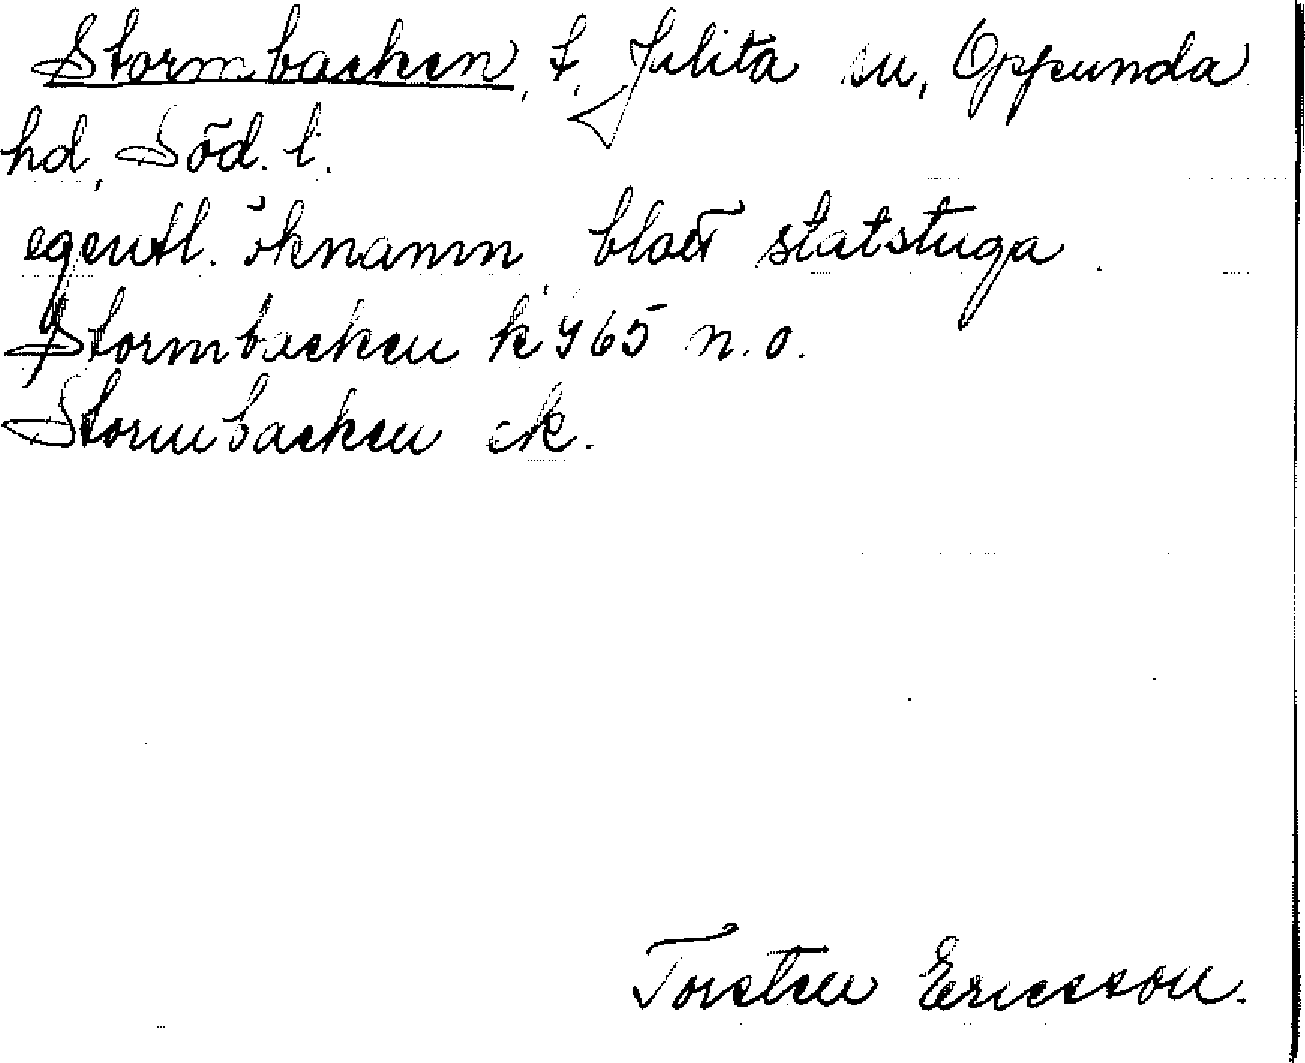 Stormbacken, t, Julita sn, Oppunda
hd, Söd. l.
egentl. öknamn, blott statstuga.
Stormbacken k 965 n.o.
Stormbacken ek.
Torsten Ericsson.